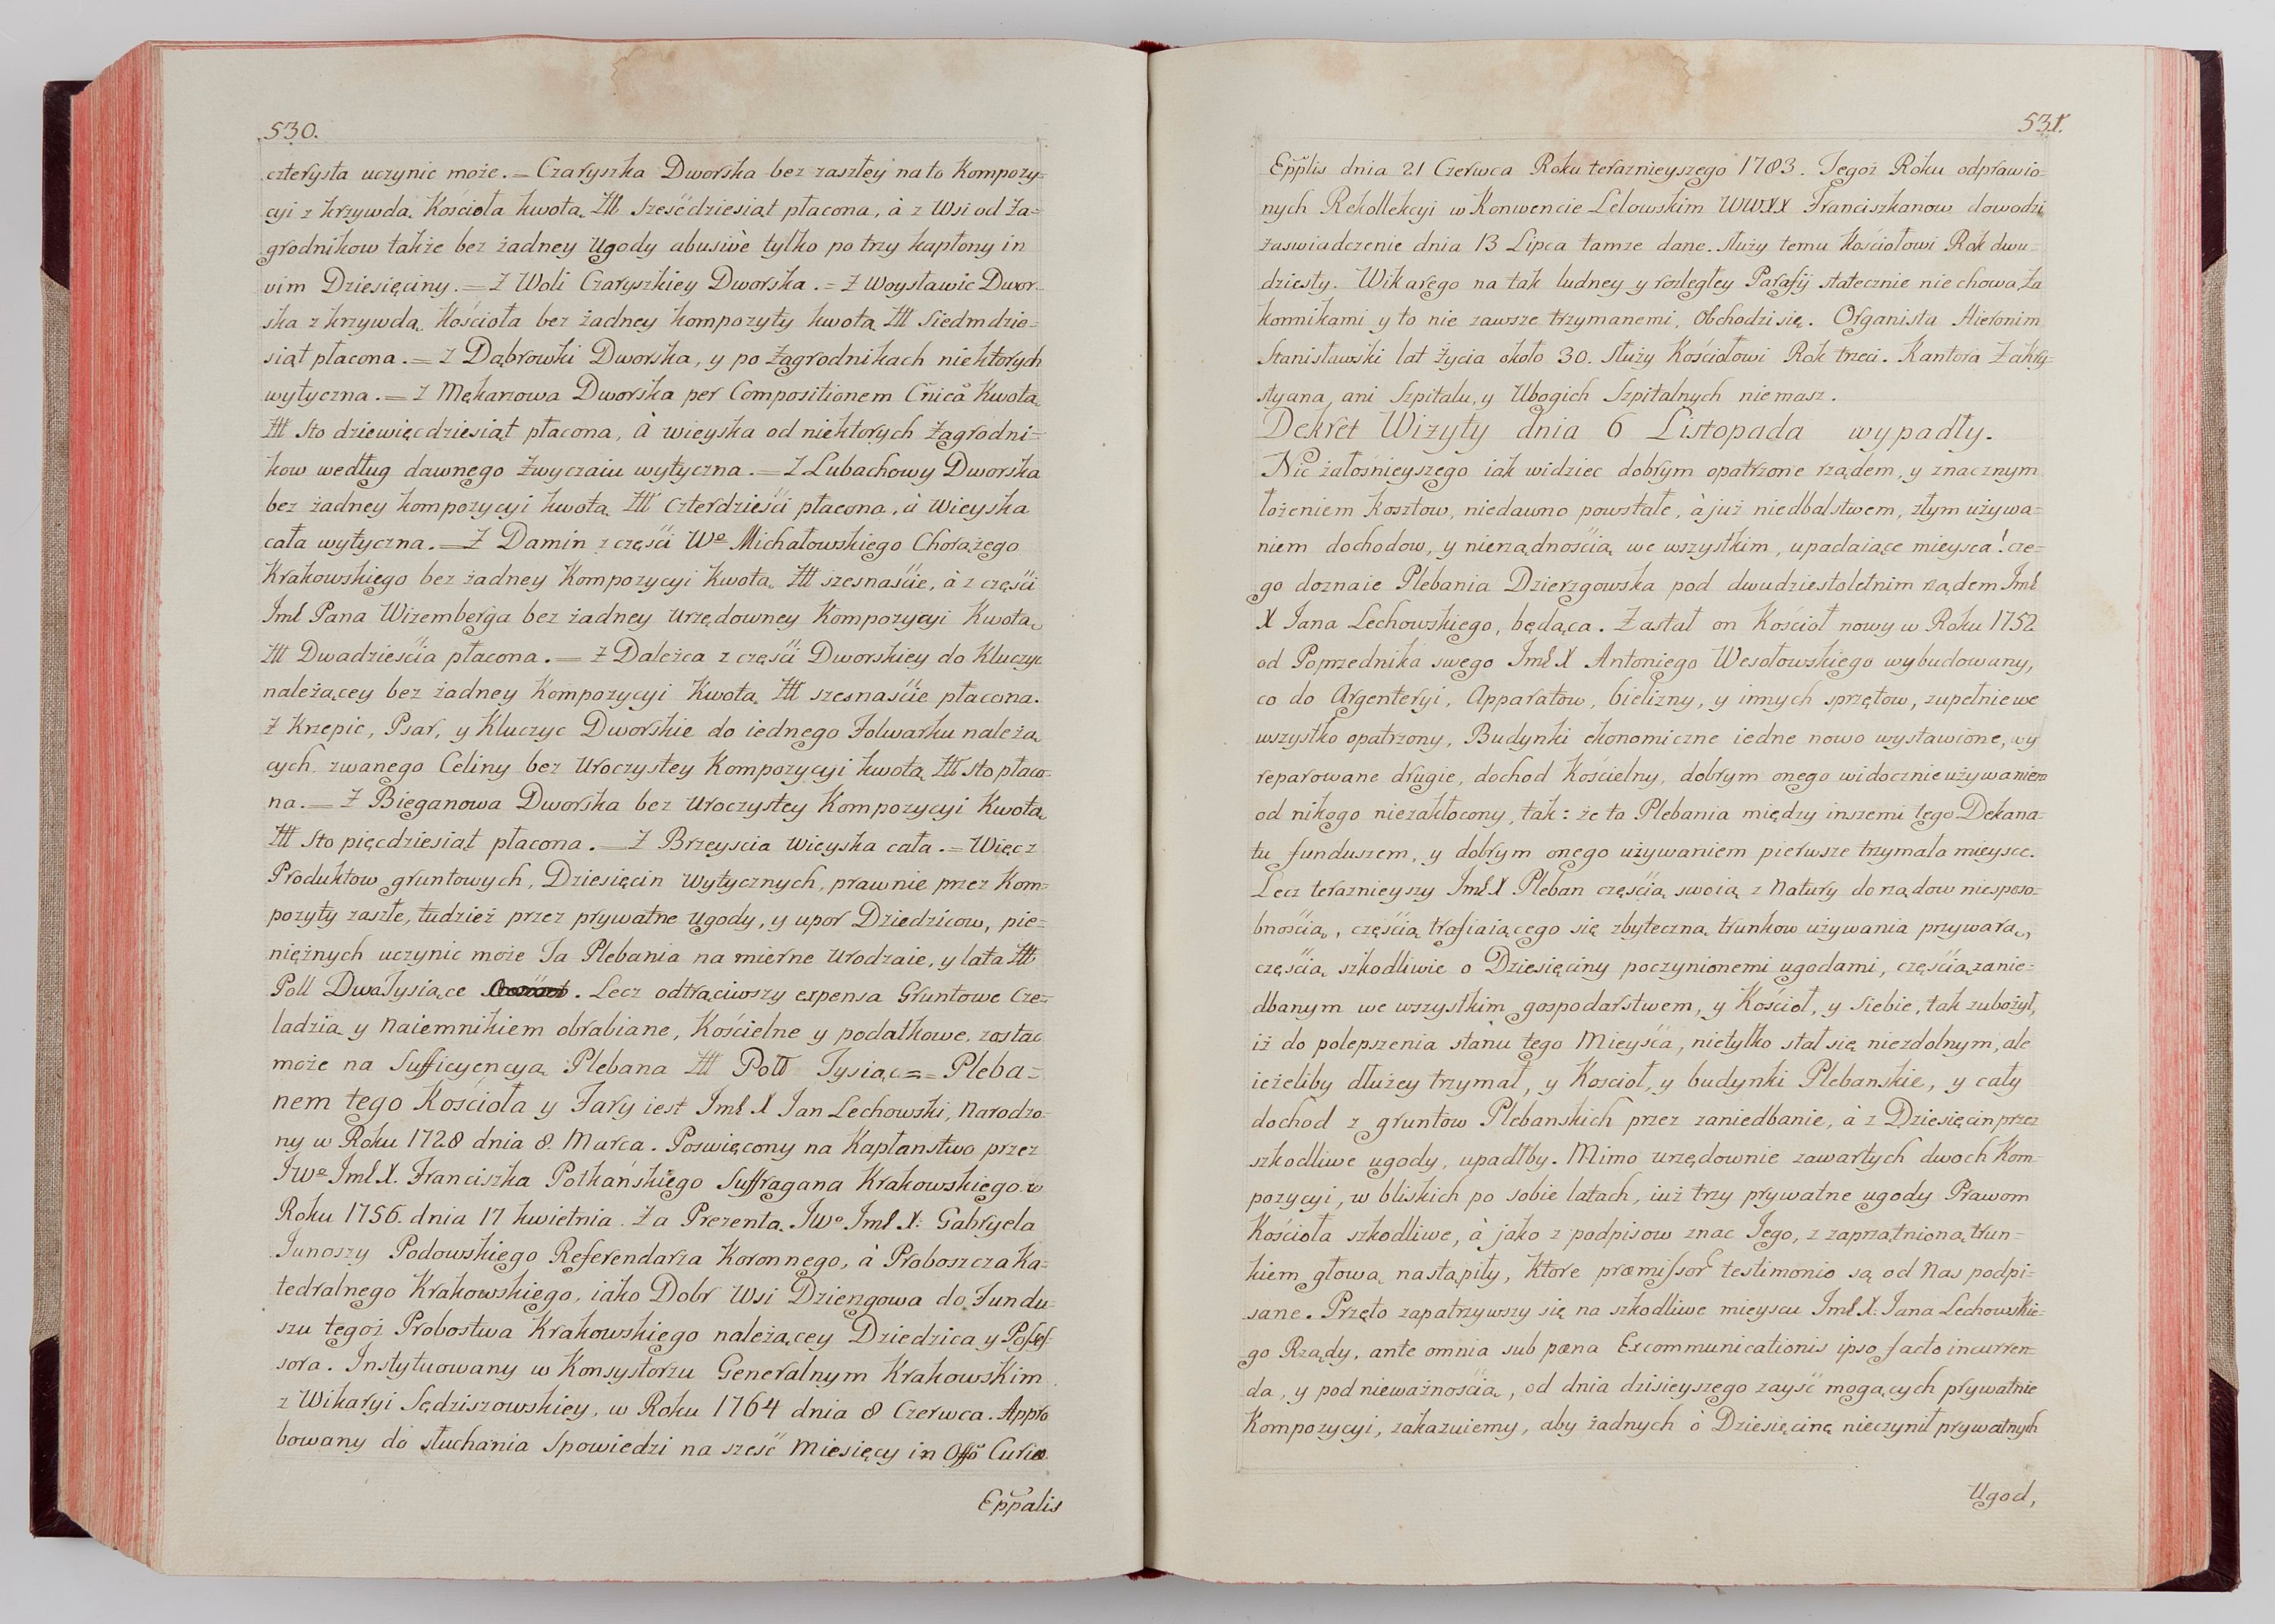 530.
czterysta uczynic może. = Czaryszka Dworska bez zaszłey na to Kompozy=
cyi z krzywdą Kościoła kwotą Ztt Sześćdziesiąt płacona, à z Wsi od Za=
grodnikow także bez żadney Ugody abusivè tylko po trzy kapłony in
vim Dziesięciny. = Z Woli Czaryszkiey Dworska. = Z Woysławic Dwor=
ska z krzywdą Kościoła bez żadney kompozyty kwotą Ztt Siedmdzie=
siąt płacona. = Z Dąbrowki Dworska, y po Zagrodnikach niektorych
wytyczna. = Z Mękarzowa Dworska per Compositionem Cnicå Kwotą
Ztt Sto dziewięcdziesiąt płacona, à wieyska od niektorych Zagrodni=
kow według dawnego Zwyczaiu wytyczna. = Z Lubachowy Dworska
bez żadney kompozycyi kwotą Ztt Czterdzieści płacona, à Wieyska
cała wytyczna. = Z Damin z części Wo Michałowskiego Chorążego
Krakowskiego bez żadney Kompozycyi Kwotą Ztt szesnaście, à z części
Imć Pana Wizemberga bez żadney Urzędowney Kompozycyi Kwotą
Ztt Dwadzieścia płacona. = Z Dależca z części Dworskiey do Kluczyc
należącey bez żadney Kompozycyi Kwotą Ztt szesnaście płacona.
Z Krzepic, Psar, y Kluczyc Dworskie do iednego Folwarku należą
cych zwanego Celiny bez Uroczystey Kompozycyi kwotą Ztt Sto płaco=
na. = Z Bieganowa Dworska bez Uroczystey Kompozycyi Kwotą
Ztt Sto pięcdziesiąt płacona. = Z Brzeyscia Wieyska cała. = Więc z
Produktow gruntowych, Dziesięcin Wytycznych, prawnie przez Kom=
pozyty zaszłe, tudzież przez prywatne Ugody, y upor Dziedzicow, pie=
niężnych uczynic może Ta Plebania na mierne Urodzaie, y lata Ztt
Poll Dwa Tysiące . Lecz odtrąciwszy expensa Gruntowe Cze=
ladzią y Naiemnikiem obrabiane, Kościelne y podatkowe, zostac
może na Sufficyencyą Plebana Ztt Poll Tysiąc = = Pleba=
nem tego Kościoła y Fary iest Imć X Jan Lechowski, Narodzo=
ny w Roku 1728 dnia 8. Marca. Poswięcony na Kapłanstwo przez
JWo Imć X. Franciszka Potkańskiego Suffragana Krakowskiego w
Roku 1756. dnia 17 kwietnia. Za Prezentą JWo Imć X: Gabryela
Junoszy Podowskiego Referendarza Koronnego, à Proboszcza Ka=
tedralnego Krakowskiego, iako Dobr Wsi Dziergowa do Fundu=
szu tegoż Probostwa Krakowskiego należącey Dziedzica y Posses=
sora. Instytuowany w Konsystorzu Generalnym Krakowskim
z Wikaryi Sędziszowskiey, w Roku 1764 dnia 8 Czerwca. Appro
bowany do słuchania Spowiedzi na sześć Miesięcy in Offõ Curiæ
Eppalis
531.
Epplis dnia 21 Czerwca Roku teraznieyszego 1783. Tegoż Roku odprawio=
nych Rekollekcyi w Konwencie Lelowskim WWXX Franciszkanow dowodzi
zaswiadczenie dnia 13 Lipca tamze dane. Służy temu Kościołowi Rok dwu=
dziesty. Wikarego na tak ludney y rozległey Parafij statecznie nie chowa, Za
konnikami y to nie zawsze trzymanemi, Obchodzi się. Organista Hieronim
Stanisławski lat życia około 30. Służy Kościołowi Rok trzeci. Kantora Zakry=
styana, ani Szpitalu, y Ubogich Szpitalnych niemasz.
Dekret Wizyty dnia 6 Listopada wypadły.
Nic żałośnieyszego iak widziec dobrym opatrzone rządem, y znacznym
łożeniem Kosztow, niedawno powstałe, à już niedbalstwem, złym używa=
niem dochodow, y nierządnością we wszystkim, upadaiące mieysca! cze=
go doznaie Plebania Dzierzgowska pod dwudziestoletnim rządem Imć
X Jana Lechowskiego, będąca. Zastał on Kościoł nowy w Roku 1752
od Poprzednika swego Imć X Antoniego Wesołowskiego wybudowany,
co do Argenteryi, Apparatow, bielizny, y innych sprzętow, zupełnie we
wszystko opatrzony, Budynki ekonomiczne iedne nowo wystawione, wy
reparowane drugie, dochod Kościelny, dobrym onego widocznie używaniem
od nikogo niezakłocony, tak: że ta Plebania między inszemi tego Dekana=
tu funduszem, y dobrym onego używaniem pierwsze trzymała mieysce.
Lecz teraznieyszy Imć X Pleban częścią swoią z Natury do rządow niesposo=
bnością, częścią trafiaiącego się zbyteczną trunkow używania przywarą,
częścią szkodliwie o Dziesięciny poczynionemi ugodami, częścią zanie=
dbanym we wszystkim gospodarstwem, y Kościoł, y Siebie, tak zubożył,
iż do polepszenia stanu tego Mieysca, nietylko stał się niezdolnym, ale
ieżeliby dłużey trzymał, y Koscioł, y budynki Plebanskie, y cały
dochod z gruntow Plebanskich przez zaniedbanie, à z Dziesięcin przez
szkodliwe ugody, upadłby. Mimo urzędownie zawartych dwoch Kom=
pozycyi, w bliskich po sobie latach, iuż trzy prywatne ugody Prawom
Kościoła szkodliwe, à jako z podpisow znac Jego, z zaprzątnioną trun=
kiem głową nastąpiły, Ktore præmissor testimonio są od Nas podpi=
sane. Przęto zapatrzywszy się na szkodliwe mieyscu Imć X. Jana Lechowskie=
go Rządy, ante omnia sub pœna Excommunicationis ipso facto incurren=
da, y pod nieważnością, od dnia dzisieyszego zayść mogących prywatnie
Kompozycyi, zakazuiemy, aby żadnych ò Dziesięcinę nieczynił prywatnych
Ugod,